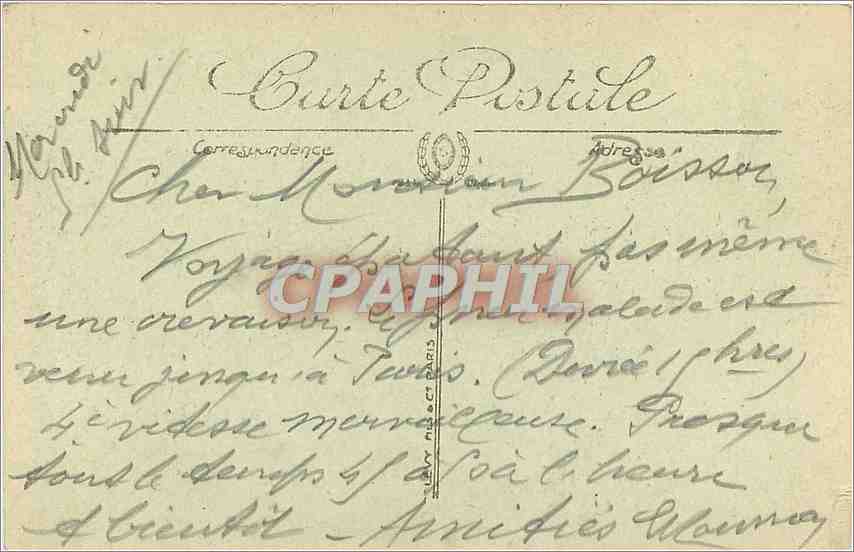 Mercredi
7h. soir
Carte Postale
Correspondance
Adresse
Cher Monsieur Boisson,
Voyage épatant pas même
une crevaison. malade est
venu jusqu'à Paris. (Durée 15 hres)
4e vitesse merveilleuse. Presque
tout le temps 45 à 50 à l'heure
A bientôt - Amitiés
LEVY FILS & Cie PARIS
CPAPHIL